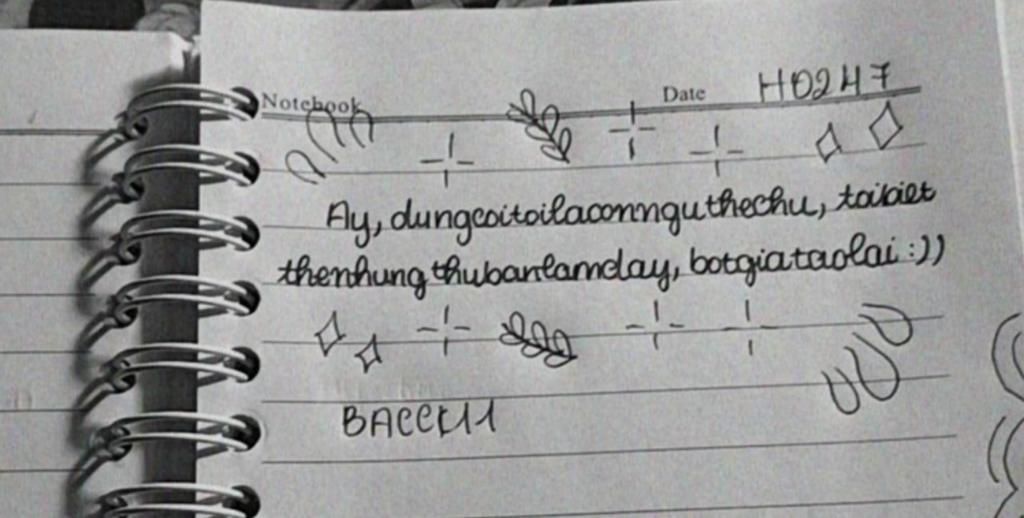 Notebook Date H0247
Ay, dungcoitoilaconnguthechu, toibiet
thenhung thubanlamday, botgiataolai :))
BACCK11